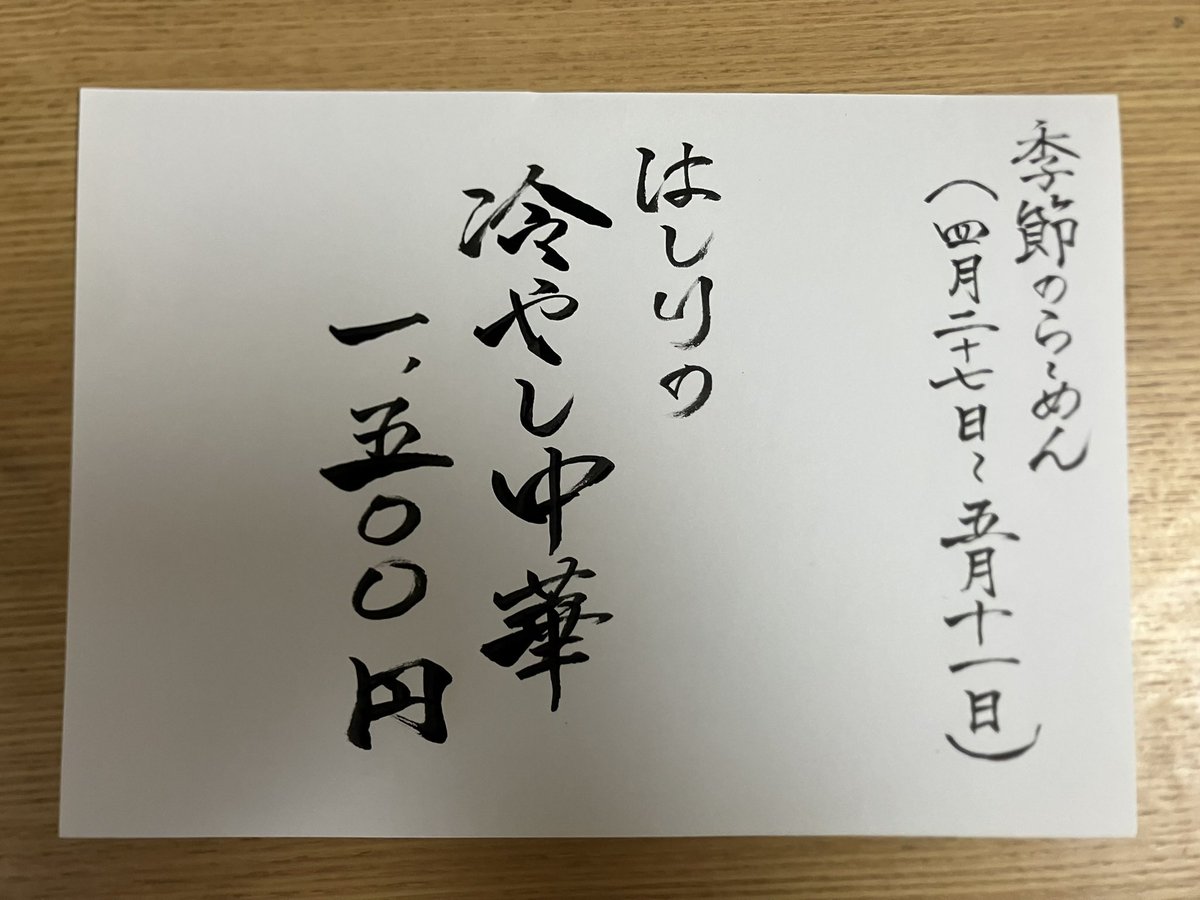 季節のらーめん
(四月二十七日〜五月十一日)
はしりの
冷やし中華
一、五〇〇円